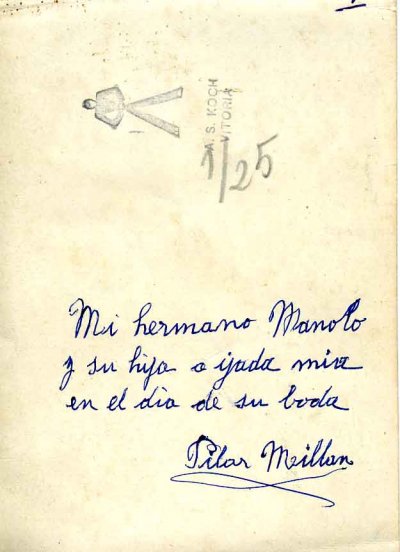 A. S. KOCH
VITORIA
1/25
Mi hermano Manolo
y su hija a ijada mia
en el dia de su boda
Pilar Millan